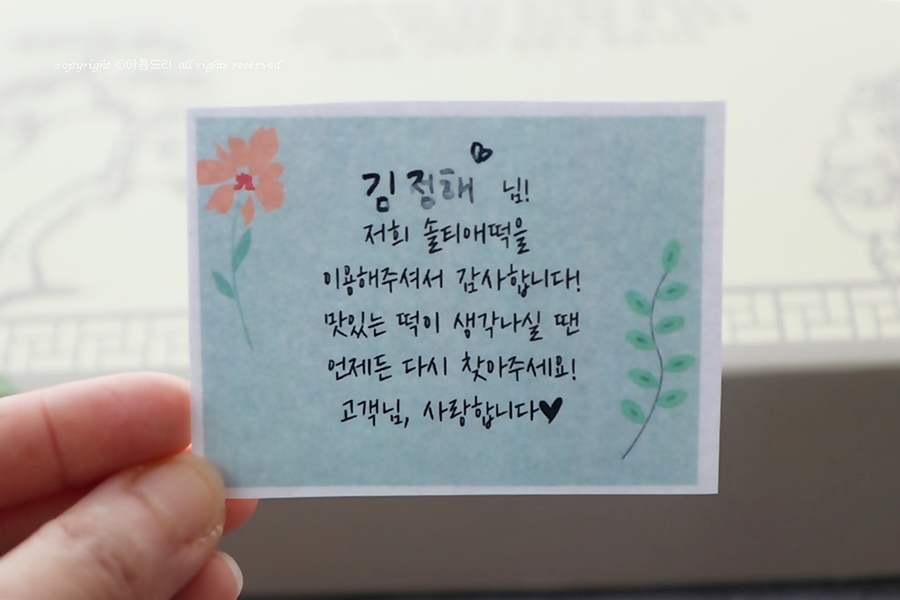 copyright ©아름드리 all rights reserved
김정해 님!
저희 솔티애떡을
이용해주셔서 감사합니다!
맛있는 떡이 생각나실 땐
언제든 다시 찾아주세요!
고객님, 사랑합니다♥